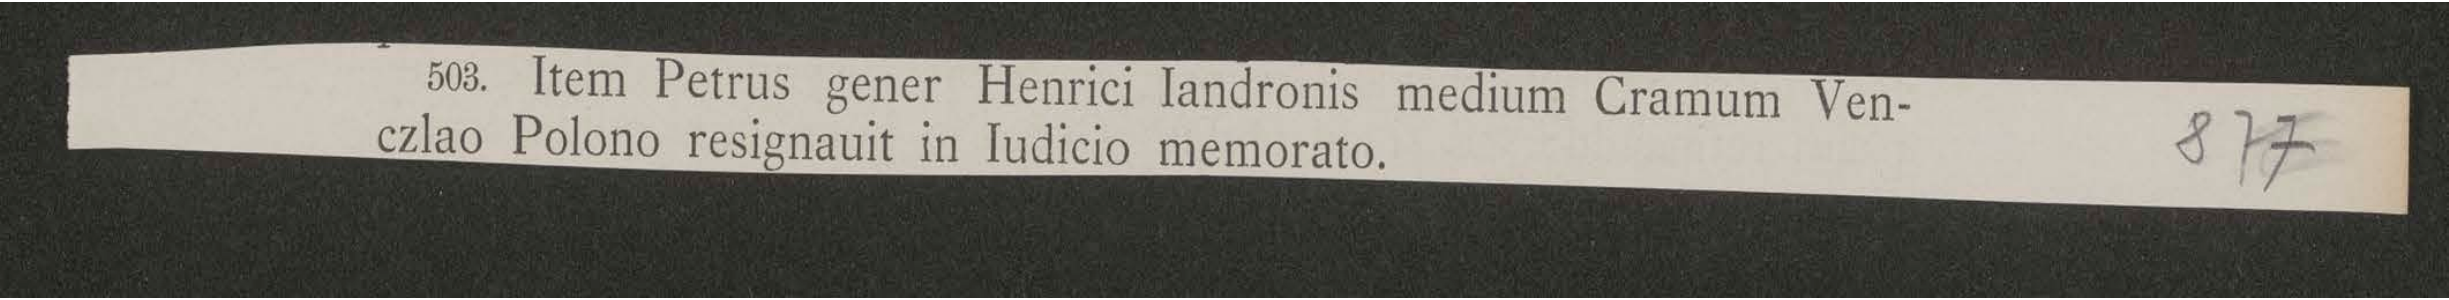 503. Item Petrus gener Henrici Iandronis medium Cramum Ven-
czlao Polono resignauit in Iudicio memorato.
877